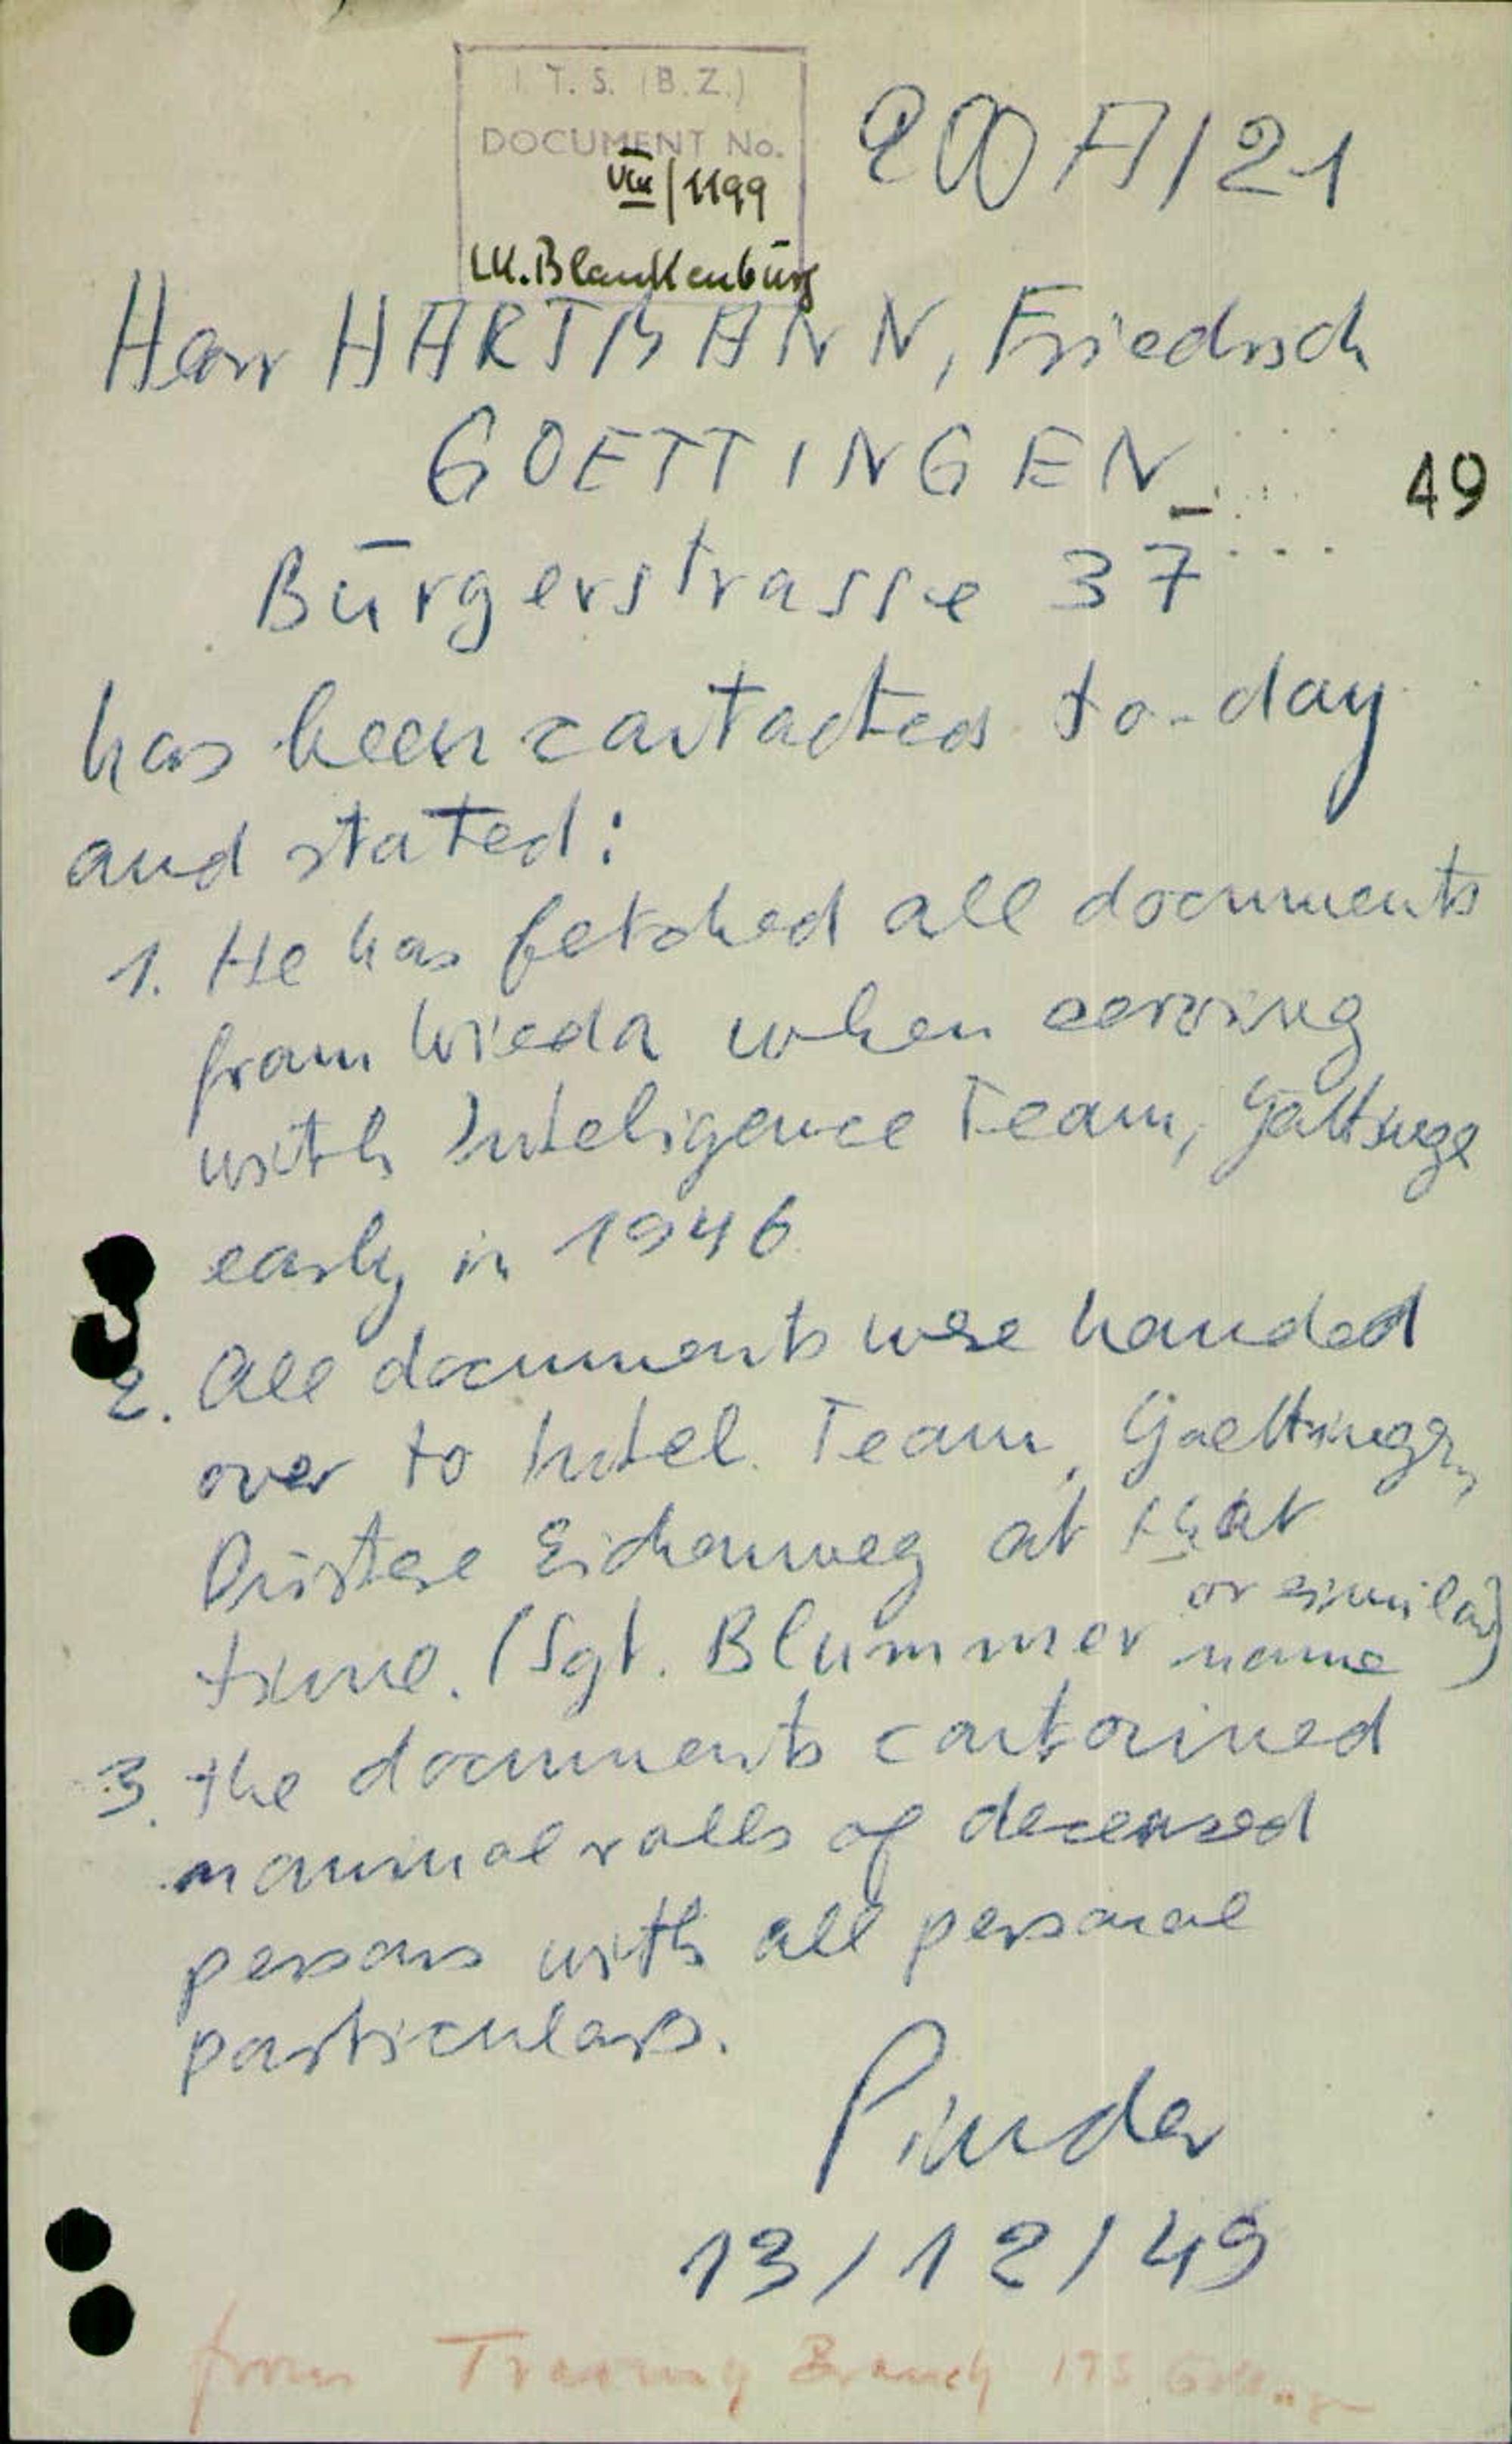 I.T.S. (B.Z.)
DOCUMENT No.
VIII/1199
LK. Blankenburg
200 A/21
Herr HARTMANN, Friedrich
GOETTINGEN
49
Bürgerstrasse 37
has been contacted to-day
and stated:
1. He has fetched all documents
from Wieda when serving
with Inteligence Team,
early in 1946
2. All documents were handed
over to Intel. Team, Goettingen,
Düstere Eichenweg at that
time. (Sgt. Blummer or similar name)
3. the documents contained
nominal rolls of deceased
persons with all personal
particulars.
Pinder
13/12/49
from Tracing Branch ITS